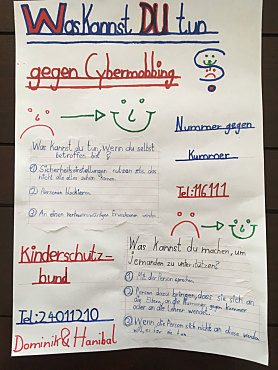 Was Kannst DU tun
gegen Cybermobbing
?
Nummer gegen
Kummer
Tel: 116111
Was kannst du tun, wenn du selbst
betroffen bist?
① Sicherheitseinstellungen nutzen so das
nicht alle alles sehen können.
② Personen blockieren
③ An einen vertrauenswürdigen Erwachsenen wenden
Kinderschutz-
bund
Tel: 24011210
Dominik & Hanibal
Was kannst du machen, um
jemanden zu unterstützen?
① Mit der Person sprechen.
② Person dazu bringen, dass sie sich an
die Eltern, an die Nummer gegen Kummer
oder an die Lehrer wendet.
③ Wenn die Person sich nicht an diese wenden
will, es für sie tun.